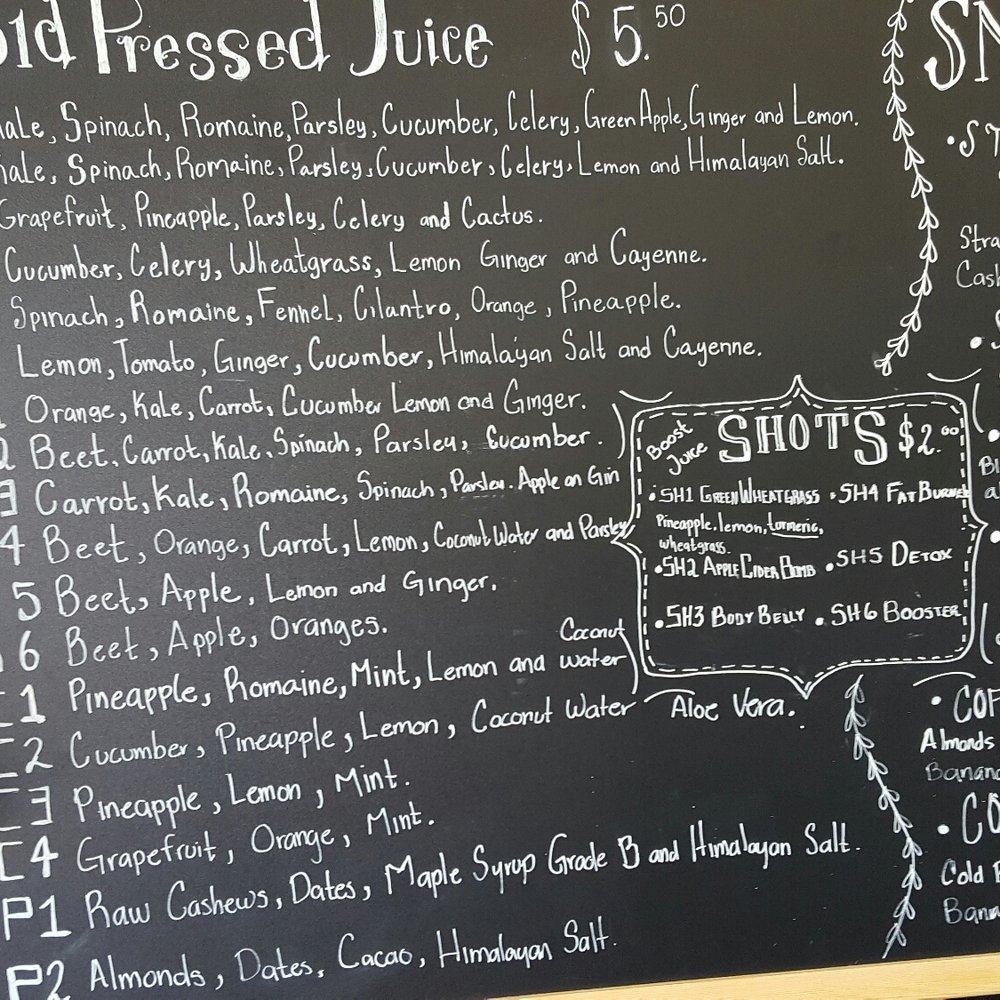 Pressed Juice $5.50
Spinach, Romaine, Parsley, Cucumber, Celery, Green Apple, Ginger and Lemon.
Spinach, Romaine, Parsley, Cucumber, Celery, Lemon and Himalayan Salt.
Grapefruit, Pineapple, Parsley, Celery and Cactus.
Cucumber, Celery, Wheatgrass, Lemon Ginger and Cayenne.
Spinach, Romaine, Fennel, Cilantro, Orange, Pineapple.
Lemon, Tomato, Ginger, Cucumber, Himalayan Salt and Cayenne.
Orange, Kale, Carrot, Cucumber Lemon and Ginger.
2 Beet, Carrot, Kale, Spinach, Parsley, Cucumber.
3 Carrot, Kale, Romaine, Spinach, Parsley. Apple an Gin
4 Beet, Orange, Carrot, Lemon, Coconut Water and Parsley
5 Beet, Apple, Lemon and Ginger.
6 Beet, Apple, Oranges.
1 Pineapple, Romaine, Mint, Lemon and Coconut water
2 Cucumber, Pineapple, Lemon, Coconut Water Aloe Vera.
3 Pineapple, Lemon, Mint.
4 Grapefruit, Orange, Mint.
P1 Raw Cashews, Dates, Maple Syrup Grade B and Himalayan Salt.
P2 Almonds, Dates, Cacao, Himalayan Salt.
Boost Juice SHOTS $2.00
• SH1 Green Wheatgrass
Pineapple, lemon, turmeric,
wheatgrass.
• SH2 Apple Cider Bomb
• SH3 Body Belly
• SH4 Fat Burner
• SH5 Detox
• SH6 Booster
Almonds
Cold